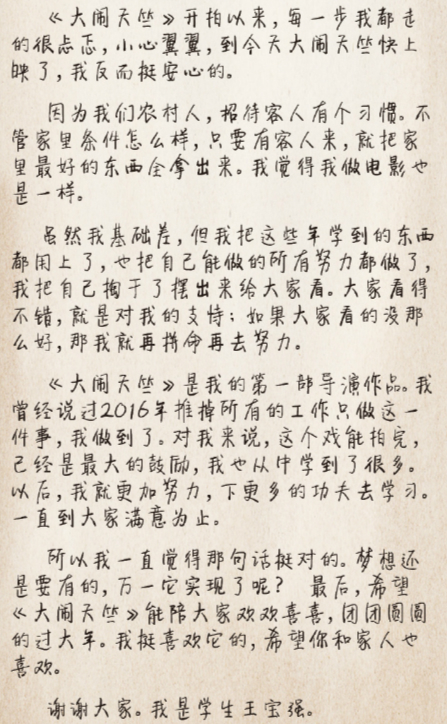 《大闹天竺》开拍以来,每一步我都走
的很忐忑,小心翼翼,到今天大闹天竺快上
映了,我反而挺安心的。
因为我们农村人,招待客人有个习惯。不
管家里条件怎么样,只要有客人来,就把家
里最好的东西全拿出来。我觉得我做电影也
是一样。
虽然我基础差,但我把这些年学到的东西
都用上了,也把自己能做的所有努力都做了,
我把自己掏干了摆出来给大家看。大家看得
不错,就是对我的支持;如果大家看的没那
么好,那我就再拼命再去努力。
《大闹天竺》是我的第一部导演作品。我
曾经说过2016年推掉所有的工作只做这一
件事,我做到了。对我来说,这个戏能拍完,
已经是最大的鼓励,我也从中学到了很多。
以后,我就更加努力,下更多的功夫去学习。
一直到大家满意为止。
所以我一直觉得那句话挺对的。梦想还
是要有的,万一它实现了呢? 最后,希望
《大闹天竺》能陪大家欢欢喜喜,团团圆圆
的过大年。我挺喜欢它的,希望你和家人也
喜欢。
谢谢大家。我是学生王宝强。